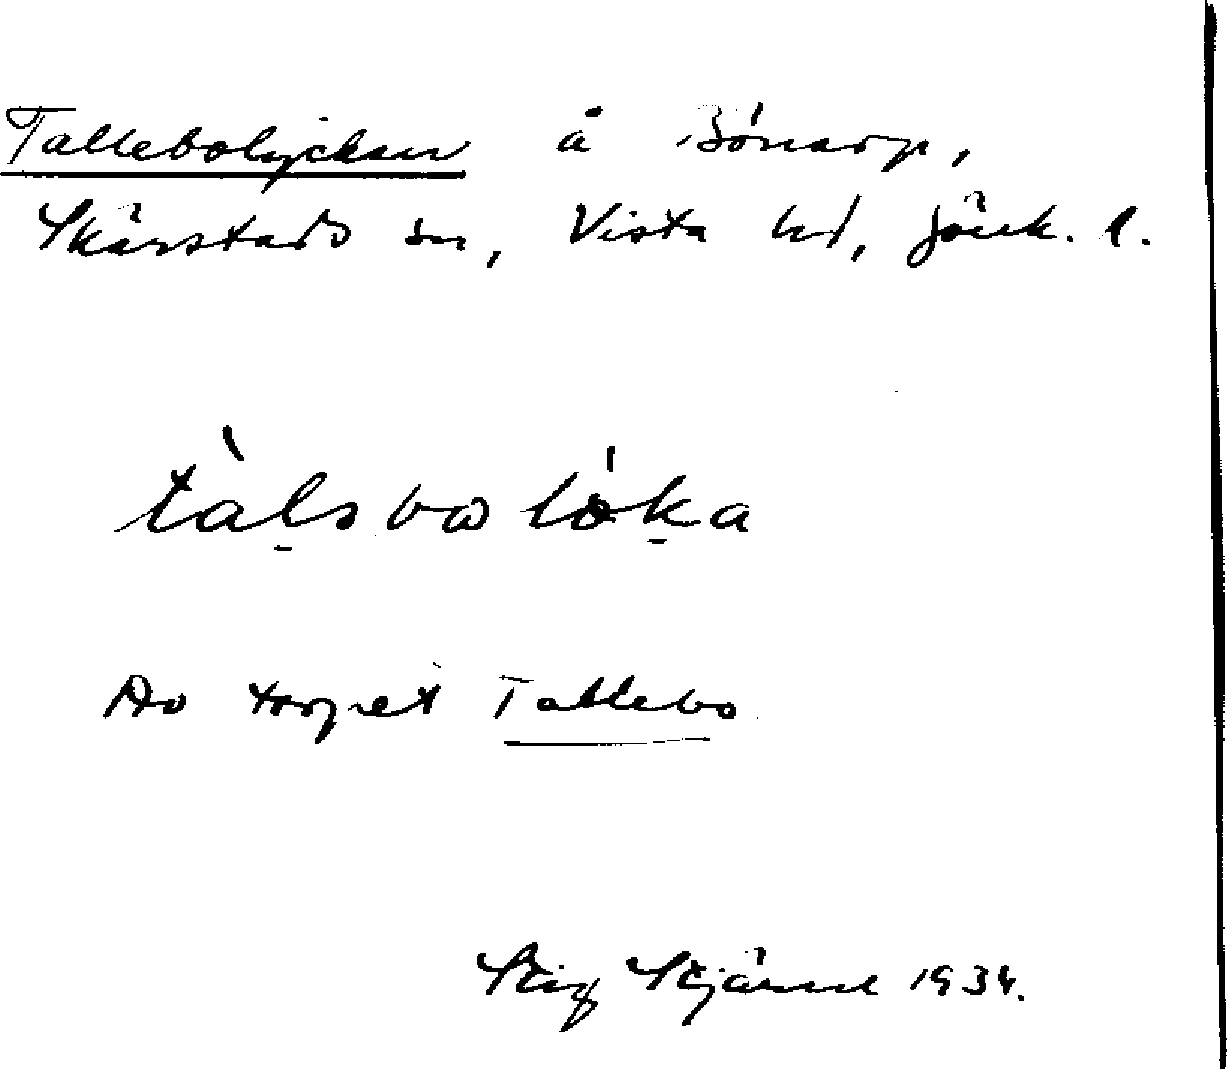 Tallebolyckan å Bönarp,
Skärstads sn, Vista hd, Jönk. l.
tàlsbolóka
Av torpet Tallebo
Stig Stjärne 1934.